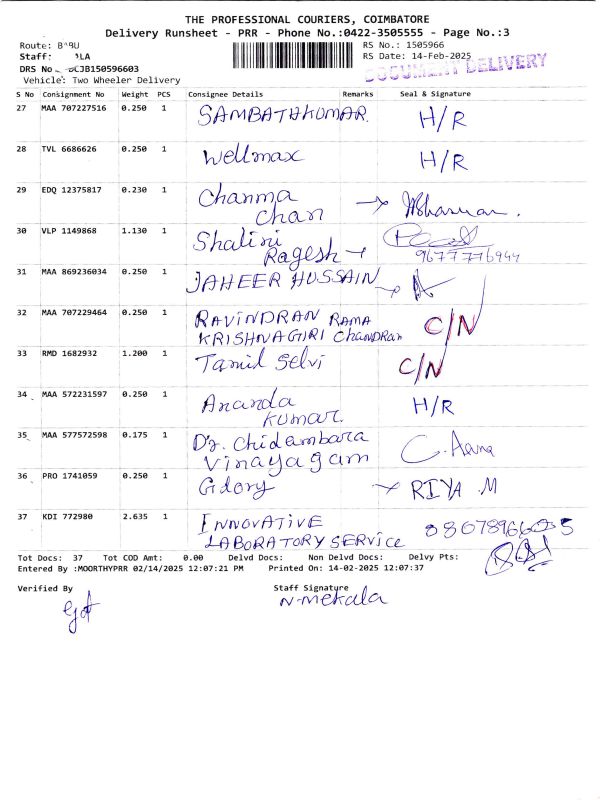 THE PROFESSIONAL COURIERS, COIMBATORE
Delivery Runsheet - PRR - Phone No.:0422-3505555 - Page No.:3
Route:
RS No.: 1505966
Staff:
RS Date: 14-Feb-2025
DOCUMENT DELIVERY
DRS No
Vehicle: Two Wheeler Delivery
S No Consignment No Weight PCS Consignee Details Remarks Seal & Signature
27 MAA 707227516 0.250 1 SAMBATHKUMAR. H/R
28 TVL 6686626 0.250 1 Wellmax H/R
29 EDQ 12375817 0.230 1 Chanma
chan
30 VLP 1149868 1.130 1 Shalini
Ragesh 9677776944
31 MAA 869236034 0.250 1 JAHEER HUSSAIN
32 MAA 707229464 0.250 1 RAVINDRAN RAMA C/N
KRISHNAGIRI ChANDRan
33 RMD 1682932 1.200 1 Tamil Selvi C/N
34 MAA 572231597 0.250 1 Ananda H/R
kumar.
35 MAA 577572598 0.175 1 Dr. Chidambara
Vinayagam
36 PRO 1741059 0.250 1 Gdory RIYA .M
37 KDI 772980 2.635 1 INNOVATIVE
LABORATORY SERVICE
Tot Docs: 37 Tot COD Amt: 0.00 Delvd Docs: Non Delvd Docs: Delvy Pts:
Entered By :MOORTHYPRR 02/14/2025 12:07:21 PM Printed On: 14-02-2025 12:07:37
Verified By Staff Signature
N-mekala